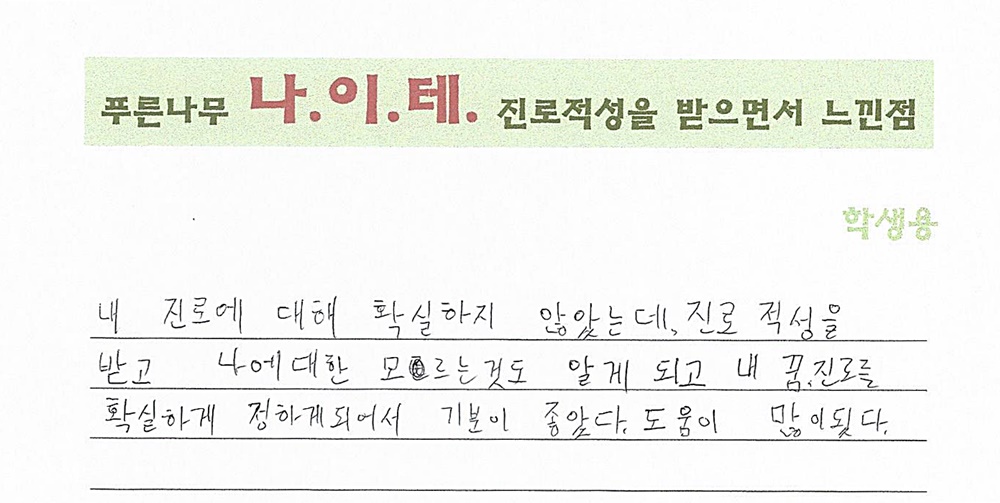 푸른나무 나.이.테. 진로적성을 받으면서 느낀점
학생용
내 진로에 대해 확실하지 않았는데, 진로 적성을
받고 나에대한 모르는것도 알게 되고 내 꿈,진로를
확실하게 정하게되어서 기분이 좋았다. 도움이 많이됬다.